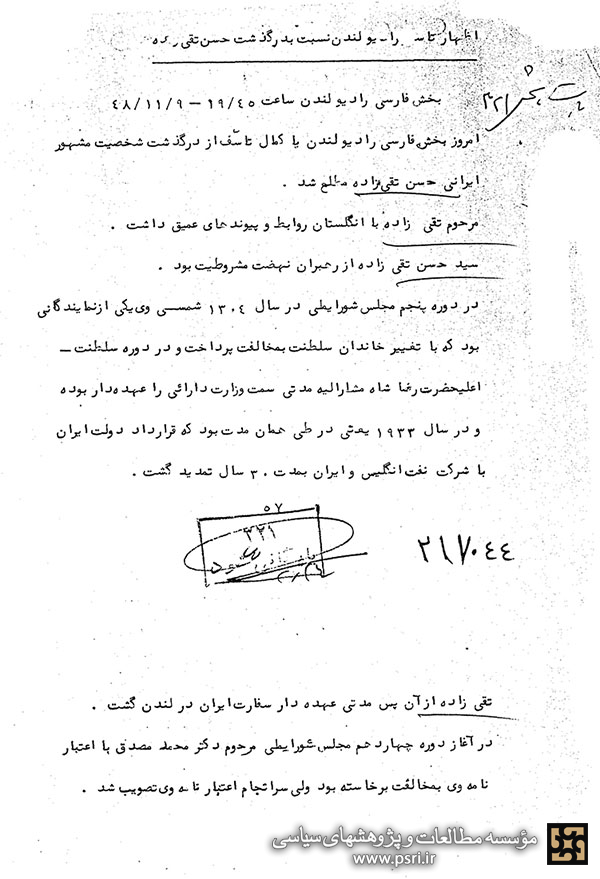 اظهار تاسف رادیو لندن نسبت بدرگذشت حسن تقی زاده
بخش فارسی رادیو لندن ساعت ۱۹/۴۵ – ۴۸/۱۱/۹
امروز بخش فارسی رادیو لندن با کمال تاسف از درگذشت شخصیت مشهور
ایرانی حسن تقی زاده مطلع شد .
مرحوم تقی زاده با انگلستان روابط و پیوندهای عمیق داشت .
سید حسن تقی زاده از رهبران نهضت مشروطیت بود .
در دوره پنجم مجلس شورایملی در سال ۱۳۰۴ شمسی وی یکی از نمایندگانی
بود که با تغییر خاندان سلطنت بمخالفت پرداخت و در دوره سلطنت –
اعلیحضرت رضا شاه مشارالیه مدتی سمت وزارت دارائی را عهده دار بوده
و در سال ۱۹۳۳ یعنی در طی همان مدت بود که قرارداد دولت ایران
با شرکت نفت انگلیس و ایران بمدت ۳۰ سال تمدید گشت .
۵۷
۳۲۱
۲۱۷۰۴۴
تقی زاده از آن پس مدتی عهده دار سفارت ایران در لندن گشت .
در آغاز دوره چهاردهم مجلس شورایملی مرحوم دکتر محمد مصدق با اعتبار
نامه وی بمخالفت برخاسته بود ولی سرانجام اعتبار نامه وی تصویب شد .
مؤسسه مطالعات و پژوهشهای سیاسی
www.psri.ir